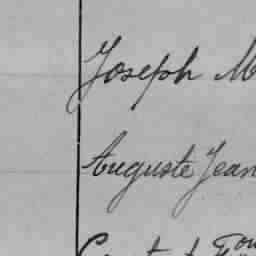 Joseph M
Auguste Jean